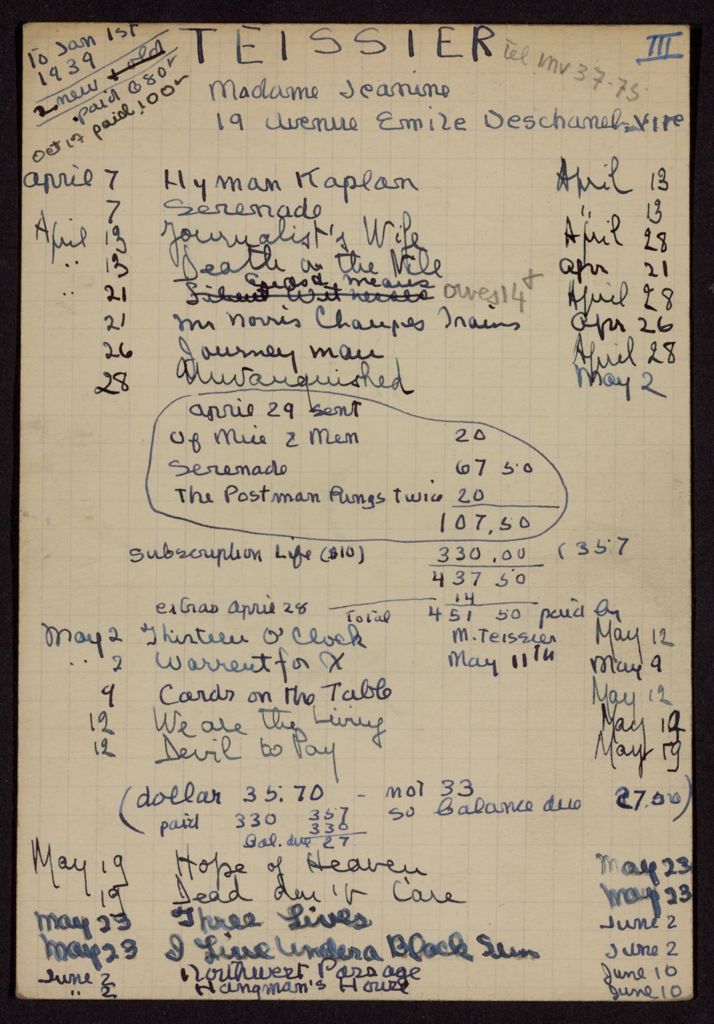 To Jan 1st
1939
2 new + old
paid 680
Oct 17 paid 100
TEISSIER
tel inv 37-75
III
Madame Jeanine
19 Avenue Emile Deschanel - VII e
april 7 Hyman Kaplan April 13
7 Serenade " 13
April 13 Journalist's Wife April 28
" 13 Death on the Nile apr 21
" 21 Good Means owes 14 April 28
Silent Witnesses
21 mr Norris Changes Trains apr 26
26 Journeyman April 28
28 Unvanquished May 2
april 29 sent
Of Mice & Men 20
Serenade 67 50
The Postman Rings twice 20
107,50
Subscription Life ($10) 330.00 (357
437 50
extras april 28 14
Total 451 50 paid by
M. Teissier
May 11th
May 2 Thirteen O'Clock May 12
" 2 Warrent for X May 9
9 Cards on the Table May 12
12 We are the Living May 19
12 Devil to Pay May 19
(dollar 35.70 - not 33
paid 330 357 so Balance due 27.00)
330
Bal. due 27
May 19 Hope of Heaven May 23
19 Dead don't Care May 23
May 23 Three Lives June 2
May 23 I Live Under a Black Sun June 2
June 2 Northwest Passage June 10
" 2 Hangman's House June 10